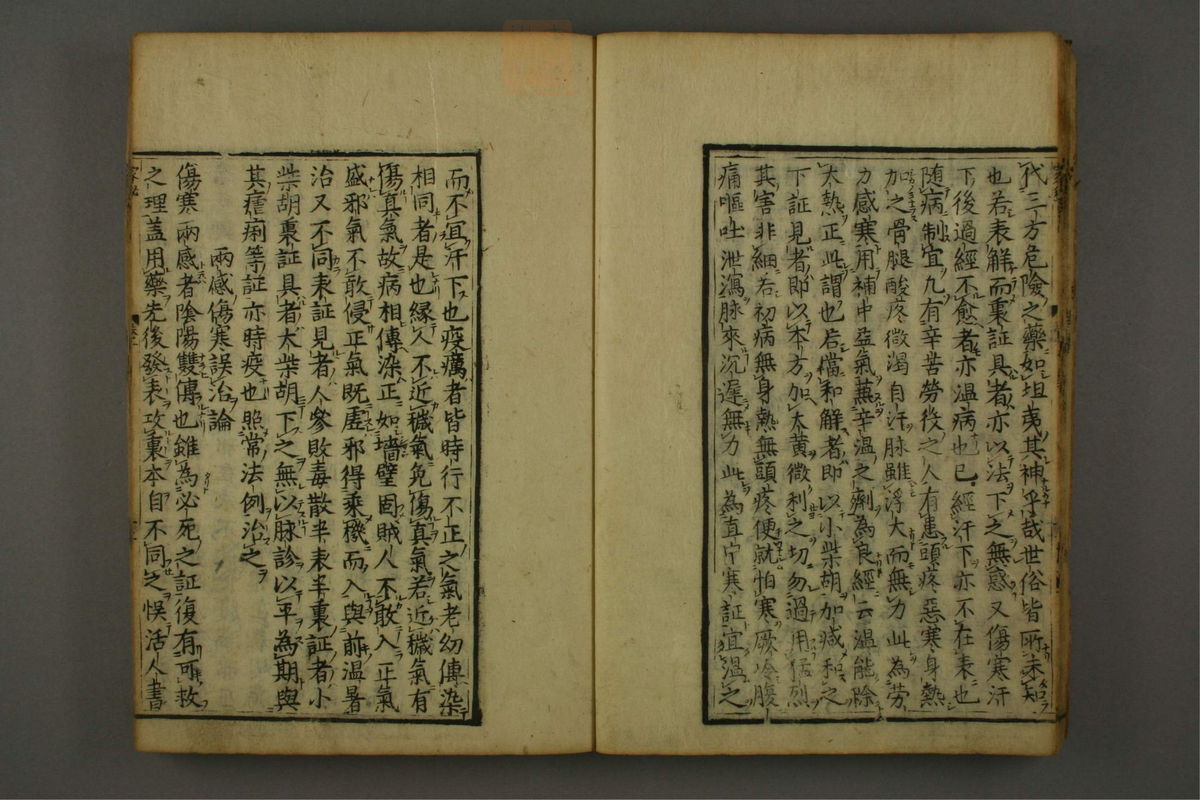 代三方危險之藥如坦夷其神乎哉世俗皆所未知
也若表解而裏証具者亦以法下之無惑又傷寒汗
下後過經不愈者亦温病也已經汗下亦不在表也
随病制宜凢有辛苦勞役之人有患頭疼惡寒身熱
加之骨腿酸疼微渴自汗脉雖浮大而無力此為勞
力感寒用補中益氣蕪辛温之劑為良經云温能除
大熱正此謂也若當和解者即以小柴胡加减和之
下証見者即以本方加大黄微利之切勿過用猛烈
其害非細若初病無身熱無頭疼便就怕寒厥冷腹
痛嘔吐泄瀉脉來沉遲無力此為直中寒証宜温之
而不宜汗下也疫癘者皆時行不正之氣老幼傳染
相同者是也縁人不近穢氣免傷真氣若近穢氣有
傷真氣故病相傳染正如墻壁固賊人不敢入正氣
盛邪氣不敢侵正氣既虗邪得乘穖而入與前温暑
治又不同表証見者人參敗毒散半表半裏証者小
柴胡裏証具者大柴胡下之無以脉診以平為期與
其瘧痢等証亦時疫也照常法例治之
兩感傷寒誤治論
傷寒兩感者陰陽雙傳也雖為必死之証復有可救
之理盖用藥先後發表攻裏本自不同之悮活人書